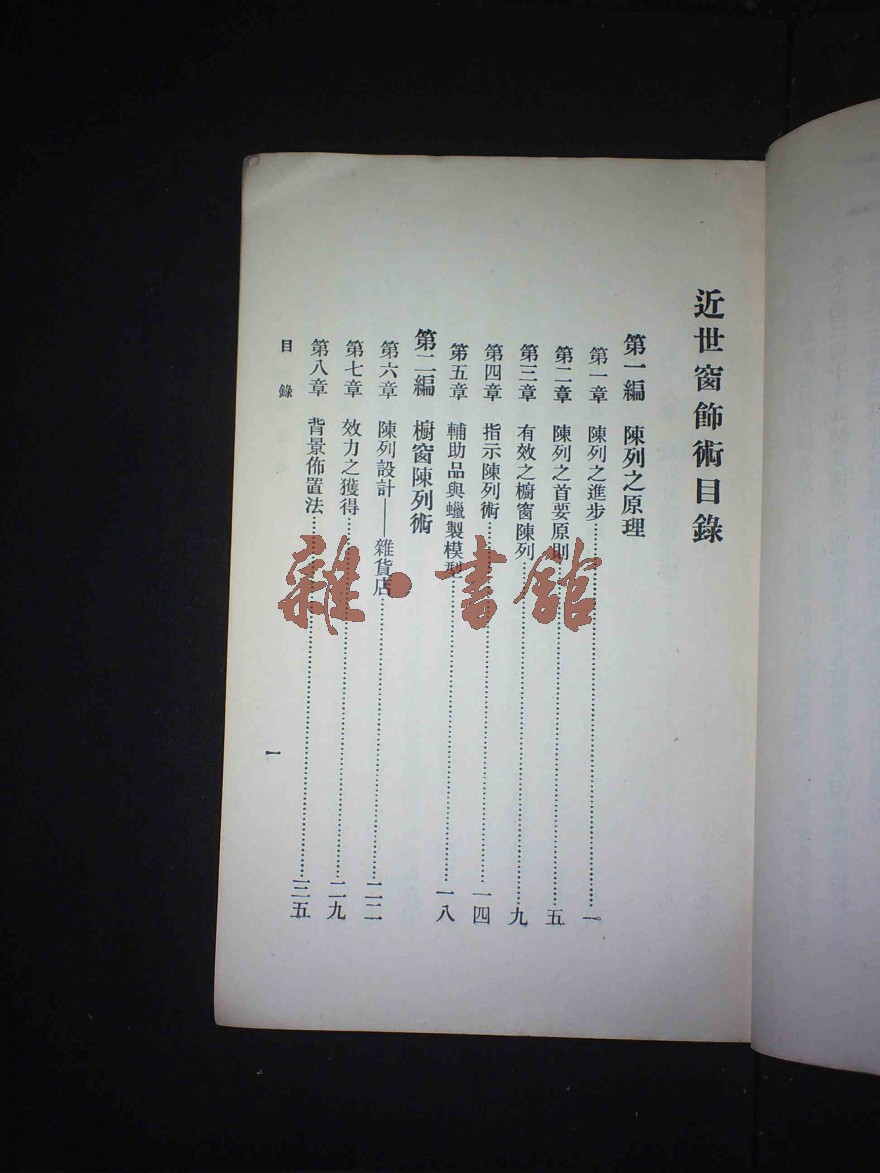 近世窗飾術目錄
第一編 陳列之原理
第一章 陳列之進步……一
第二章 陳列之首要原則……五
第三章 有效之櫥窗陳列……九
第四章 指示陳列術……一四
第五章 輔助品與蠟製模型……一八
第二編 櫥窗陳列術
第六章 陳列設計——雜貨店……二二
第七章 效力之獲得……二九
第八章 背景佈置法……三五
目錄 一
雜·書館